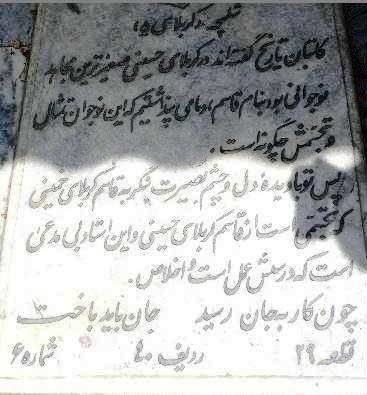 شلمچه، کربلای ۵،
کاتبان تاریخ گفته‌اند در کربلای حسینی صغیرترین مجاهد
نوجوانی بود بنام قاسم، اما می‌اندیشیم که این نوجوان تمثال
و تجسمش چگونه است.
پس تو با دیده دل و چشم بصیرت بنگر به قاسم کربلای خمینی
که تجسمی است از قاسم کربلای حسینی و این استاد بی مدعی
است که درسش عمل است و اخلاص.
چون کار به جان رسید جان باید باخت
قطعه ۲۹ ردیف ۴۰ شماره ۶